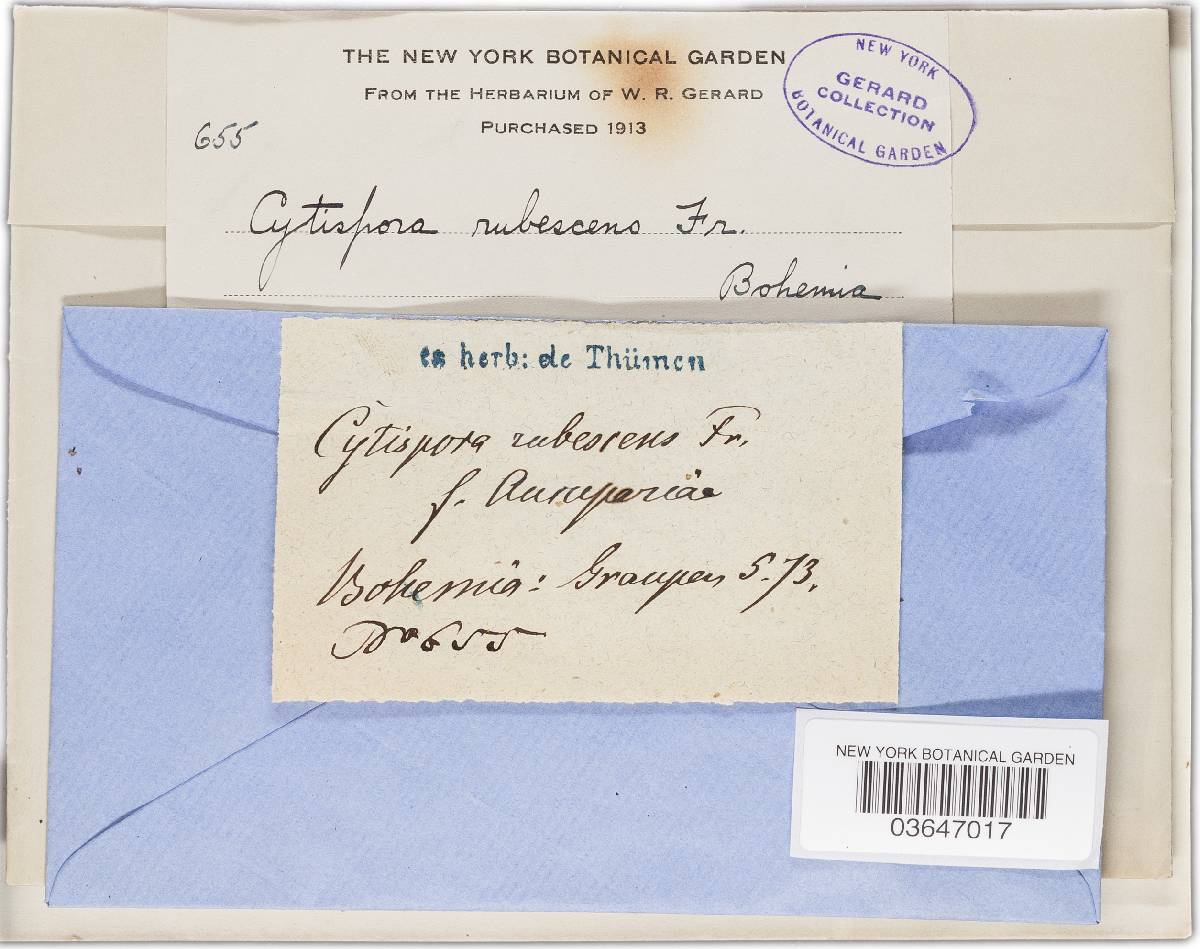 THE NEW YORK BOTANICAL GARDEN
FROM THE HERBARIUM OF W. R. GERARD
PURCHASED 1913
NEW YORK
GERARD
COLLECTION
BOTANICAL GARDEN
655
Cytispora rubescens Fr.
Bohemia
ex herb: de Thümen
Cytispora rubescens Fr.
f. Aucupariae
Bohemia: Graupen 5.73.
No 655
NEW YORK BOTANICAL GARDEN
03647017